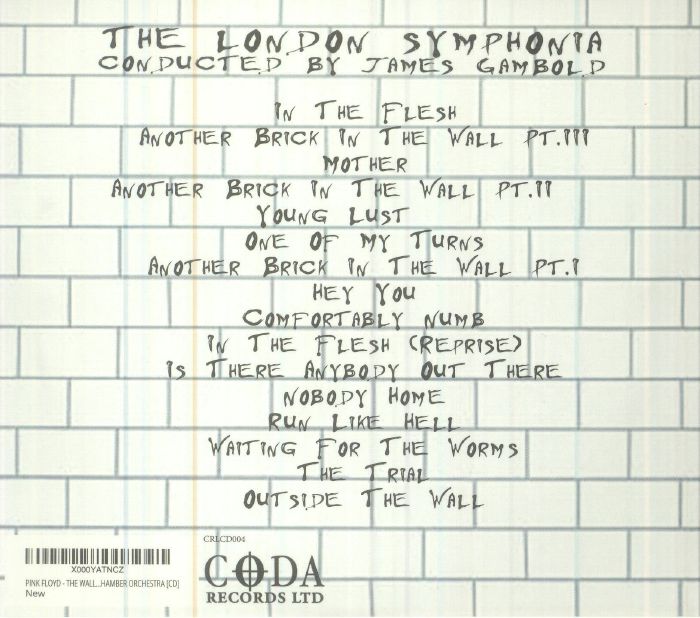 THE LONDON SYMPHONIA
CONDUCTED BY JAMES GAMBOLD
IN THE FLESH
ANOTHER BRICK IN THE WALL PT.III
MOTHER
ANOTHER BRICK IN THE WALL PT.II
YOUNG LUST
ONE OF MY TURNS
ANOTHER BRICK IN THE WALL PT.I
HEY YOU
COMFORTABLY NUMB
IN THE FLESH (REPRISE)
IS THERE ANYBODY OUT THERE
NOBODY HOME
RUN LIKE HELL
WAITING FOR THE WORMS
THE TRIAL
OUTSIDE THE WALL
X000YATNCZ
PINK FLOYD - THE WALL...HAMBER ORCHESTRA [CD]
New
CRLCD004
CODA
RECORDS LTD